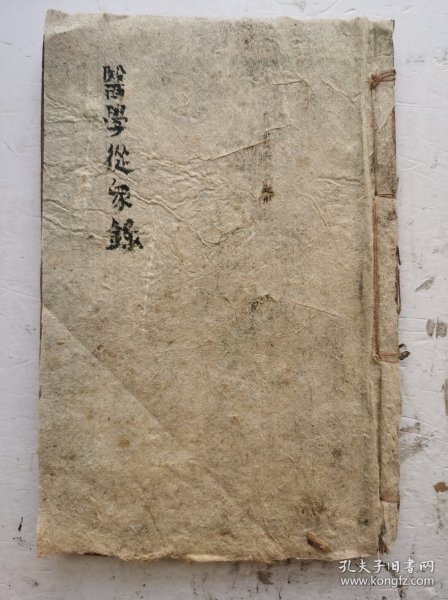 醫學從衆錄
孔夫子旧书网
www.kongfz.com